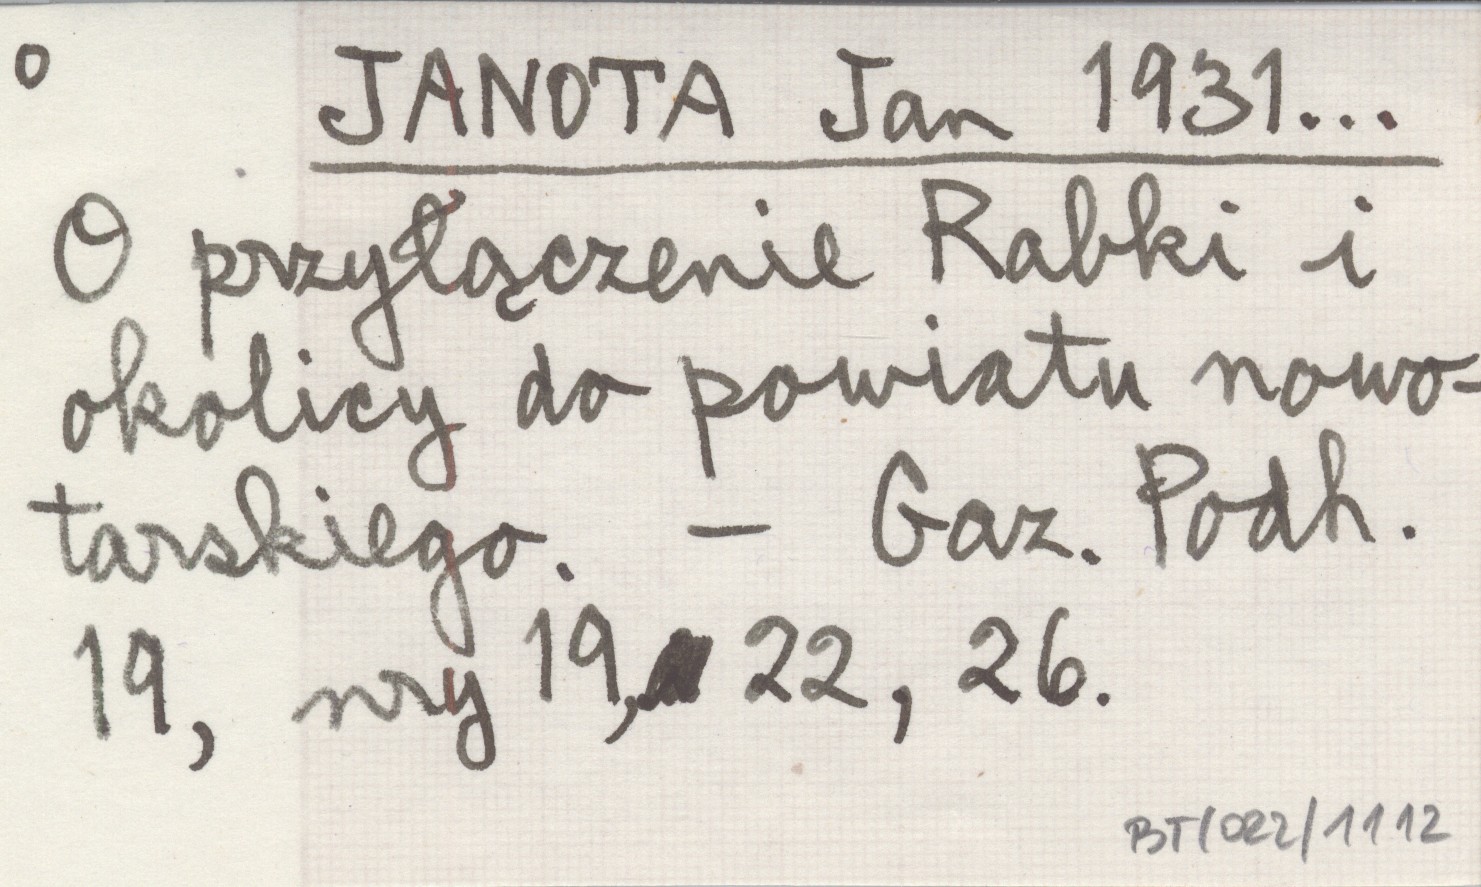 o JANOTA Jan 1931...
O przyłączenie Rabki i
okolicy do powiatu nowo-
tarskiego. – Gaz. Podh.
19, nry 19, 22, 26.
BT/022/1112